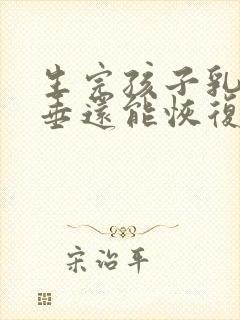 生完孩子乳
垂還能恢復
宋治平